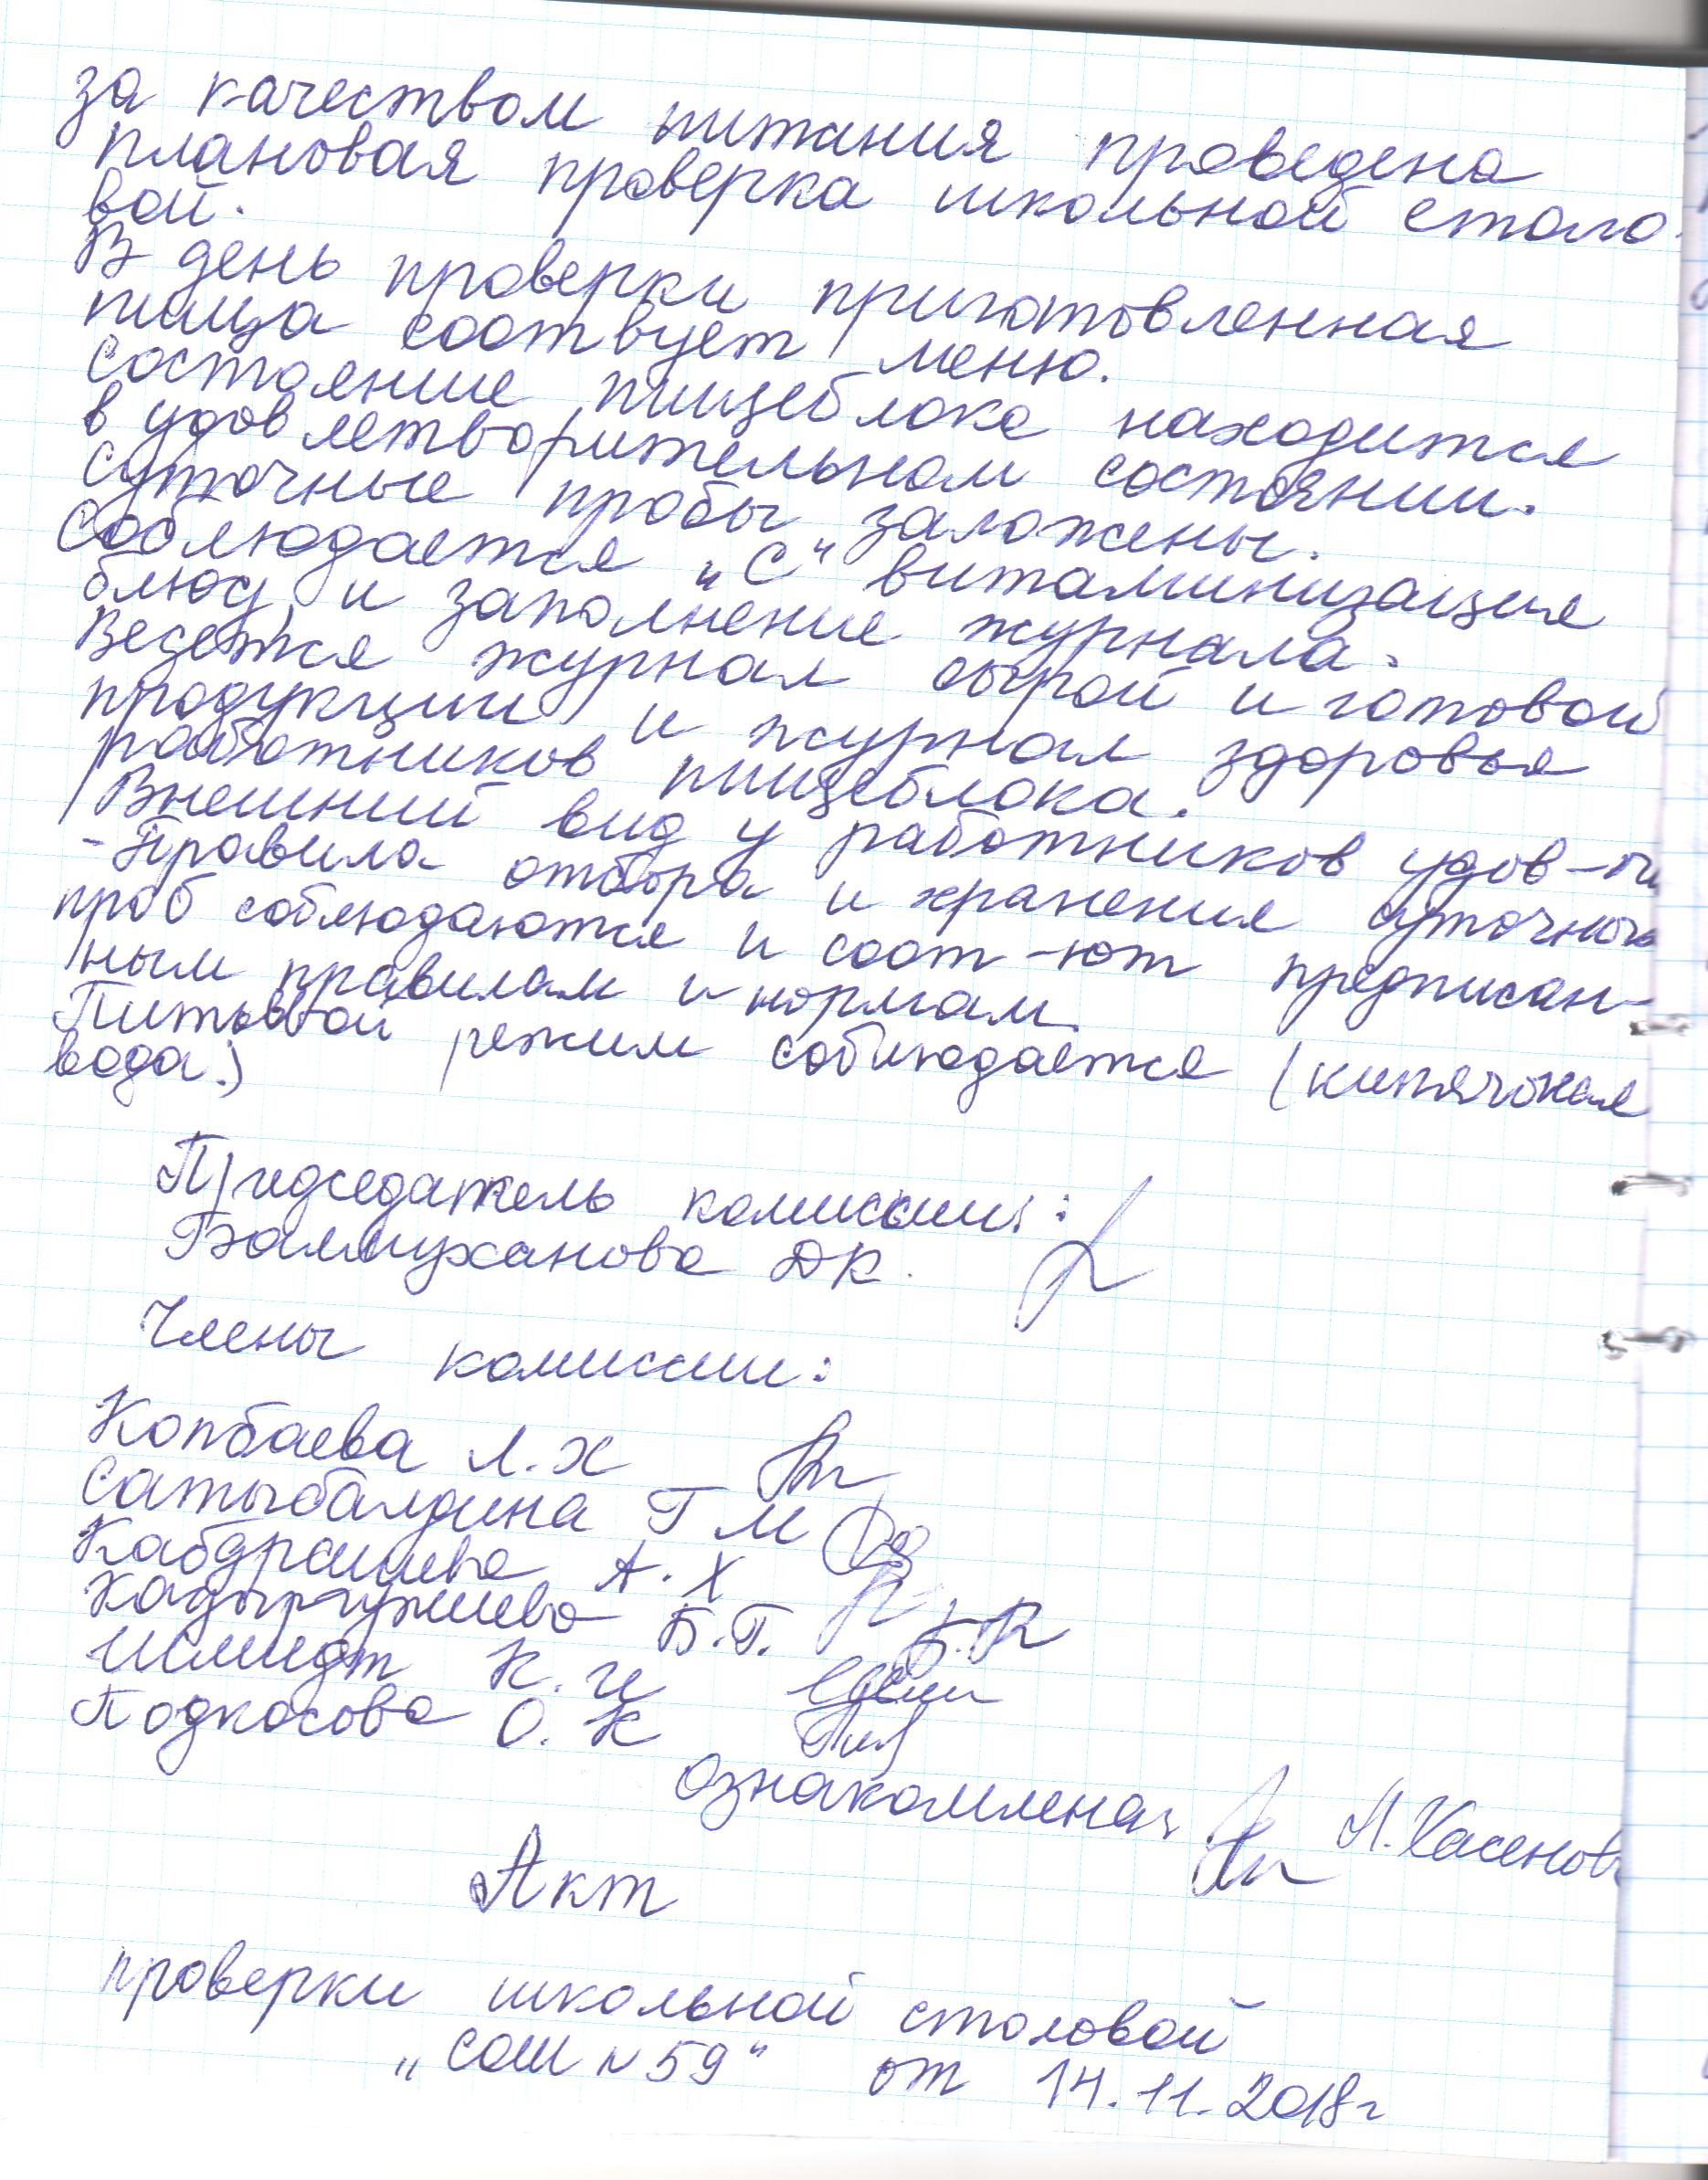 за качеством питания проведена
плановая проверка школьной столо
вой.
В день проверки приготовленная
пища соотвует меню.
Состояние пищеблока находится
в удовлетворительном состоянии.
Суточные пробы заложены.
Соблюдается „С“ витаминизация
блюд и заполнение журнала.
Ведется журнал сырой и готовой
продукции и журнал здоровья
работников пищеблока.
Внешний вид у работников удов-
- Правила отбора и хранения суточной
проб соблюдаются и соот-ют предписан-
ным правилам и нормам.
Питьевой режим соблюдается (кипяченая
вода.)
Председатель комиссии:
Баймуханова Д К.
Члены комиссии:
Копбаева Л. Х
Сатыбалдина Г М
Кабдрашева А. Х
Б. Г.
Шмидт К. И
Подкосова О. К
Ознакомлена:
А. Хасенов
Акт
проверки школьной столовой
„СОШ N 59“ от 14. 11. 2018г